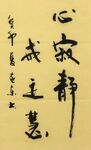 心寂静
戒定慧
癸卯夏